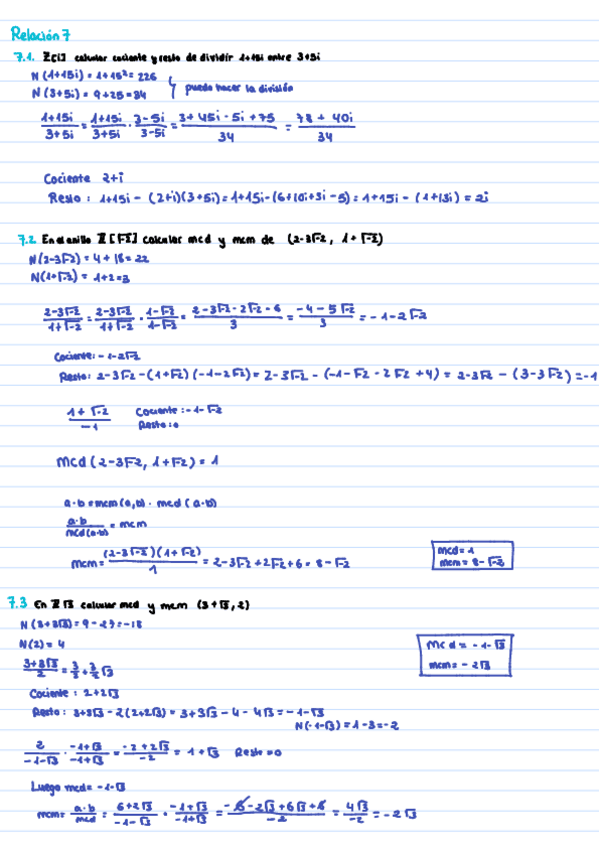 Relación 7
7.1. Z[i] calcular cociente y resto de dividir 1+15i entre 3+5i
N(1+15i) = 1+15² = 226
N(3+5i) = 9+25 = 34
puedo hacer la división
(1+15i)/(3+5i) = (1+15i)/(3+5i) · (3-5i)/(3-5i) = (3+45i-5i+75)/34 = (78+40i)/34
Cociente 2+i
Resto: 1+15i - (2+i)(3+5i) = 1+15i - (6+10i+3i-5) = 1+15i - (1+13i) = 2i
7.2 En el anillo Z[√-2] calcular mcd y mcm de (2-3√-2, 1+√-2)
N(2-3√-2) = 4+18 = 22
N(1+√-2) = 1+2=3
(2-3√-2)/(1+√-2) = (2-3√-2)/(1+√-2) · (1-√-2)/(1-√-2) = (2-3√-2-2√-2-6)/3 = (-4-5√-2)/3 = -1-2√-2
Cociente: -1-2√-2
Resto: 2-3√-2-(1+√-2)(-1-2√-2) = 2-3√-2 - (-1-√-2-2√-2+4) = 2-3√-2 - (3-3√-2) = -1
(1+√-2)/-1 Cociente: -1-√-2
Resto: 0
mcd (2-3√-2, 1+√-2) = 1
a·b = mcm (a,b) · mcd (a·b)
a·b/mcd(a·b) = mcm
mcm = (2-3√-2)(1+√-2)/1 = 2-3√-2+2√-2+6 = 8-√-2
mcd = 1
mcm = 8-√-2
7.3 En Z√3 calcular mcd y mcm (3+√3, 2)
N(3+3√3) = 9-27 = -18
N(2) = 4
(3+3√3)/2 = 3/2 + 3/2 √3
mcd = -1-√3
mcm = -2√3
Cociente: 2+2√3
Resto: 3+3√3 - 2(2+2√3) = 3+3√3-4-4√3 = -1-√3
N(-1-√3) = 1-3 = -2
2/(-1-√3) · (-1+√3)/(-1+√3) = (-2+2√3)/-2 = 1+√3 Resto = 0
Luego mcd = -1-√3
mcm = a·b/mcd = (6+2√3)/(-1-√3) · (-1+√3)/(-1+√3) = (-6-2√3+6√3+6)/-2 = 4√3/-2 = -2√3